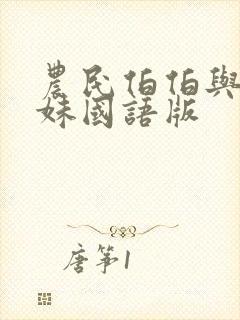 農民伯伯與
妹國語版
唐筝1